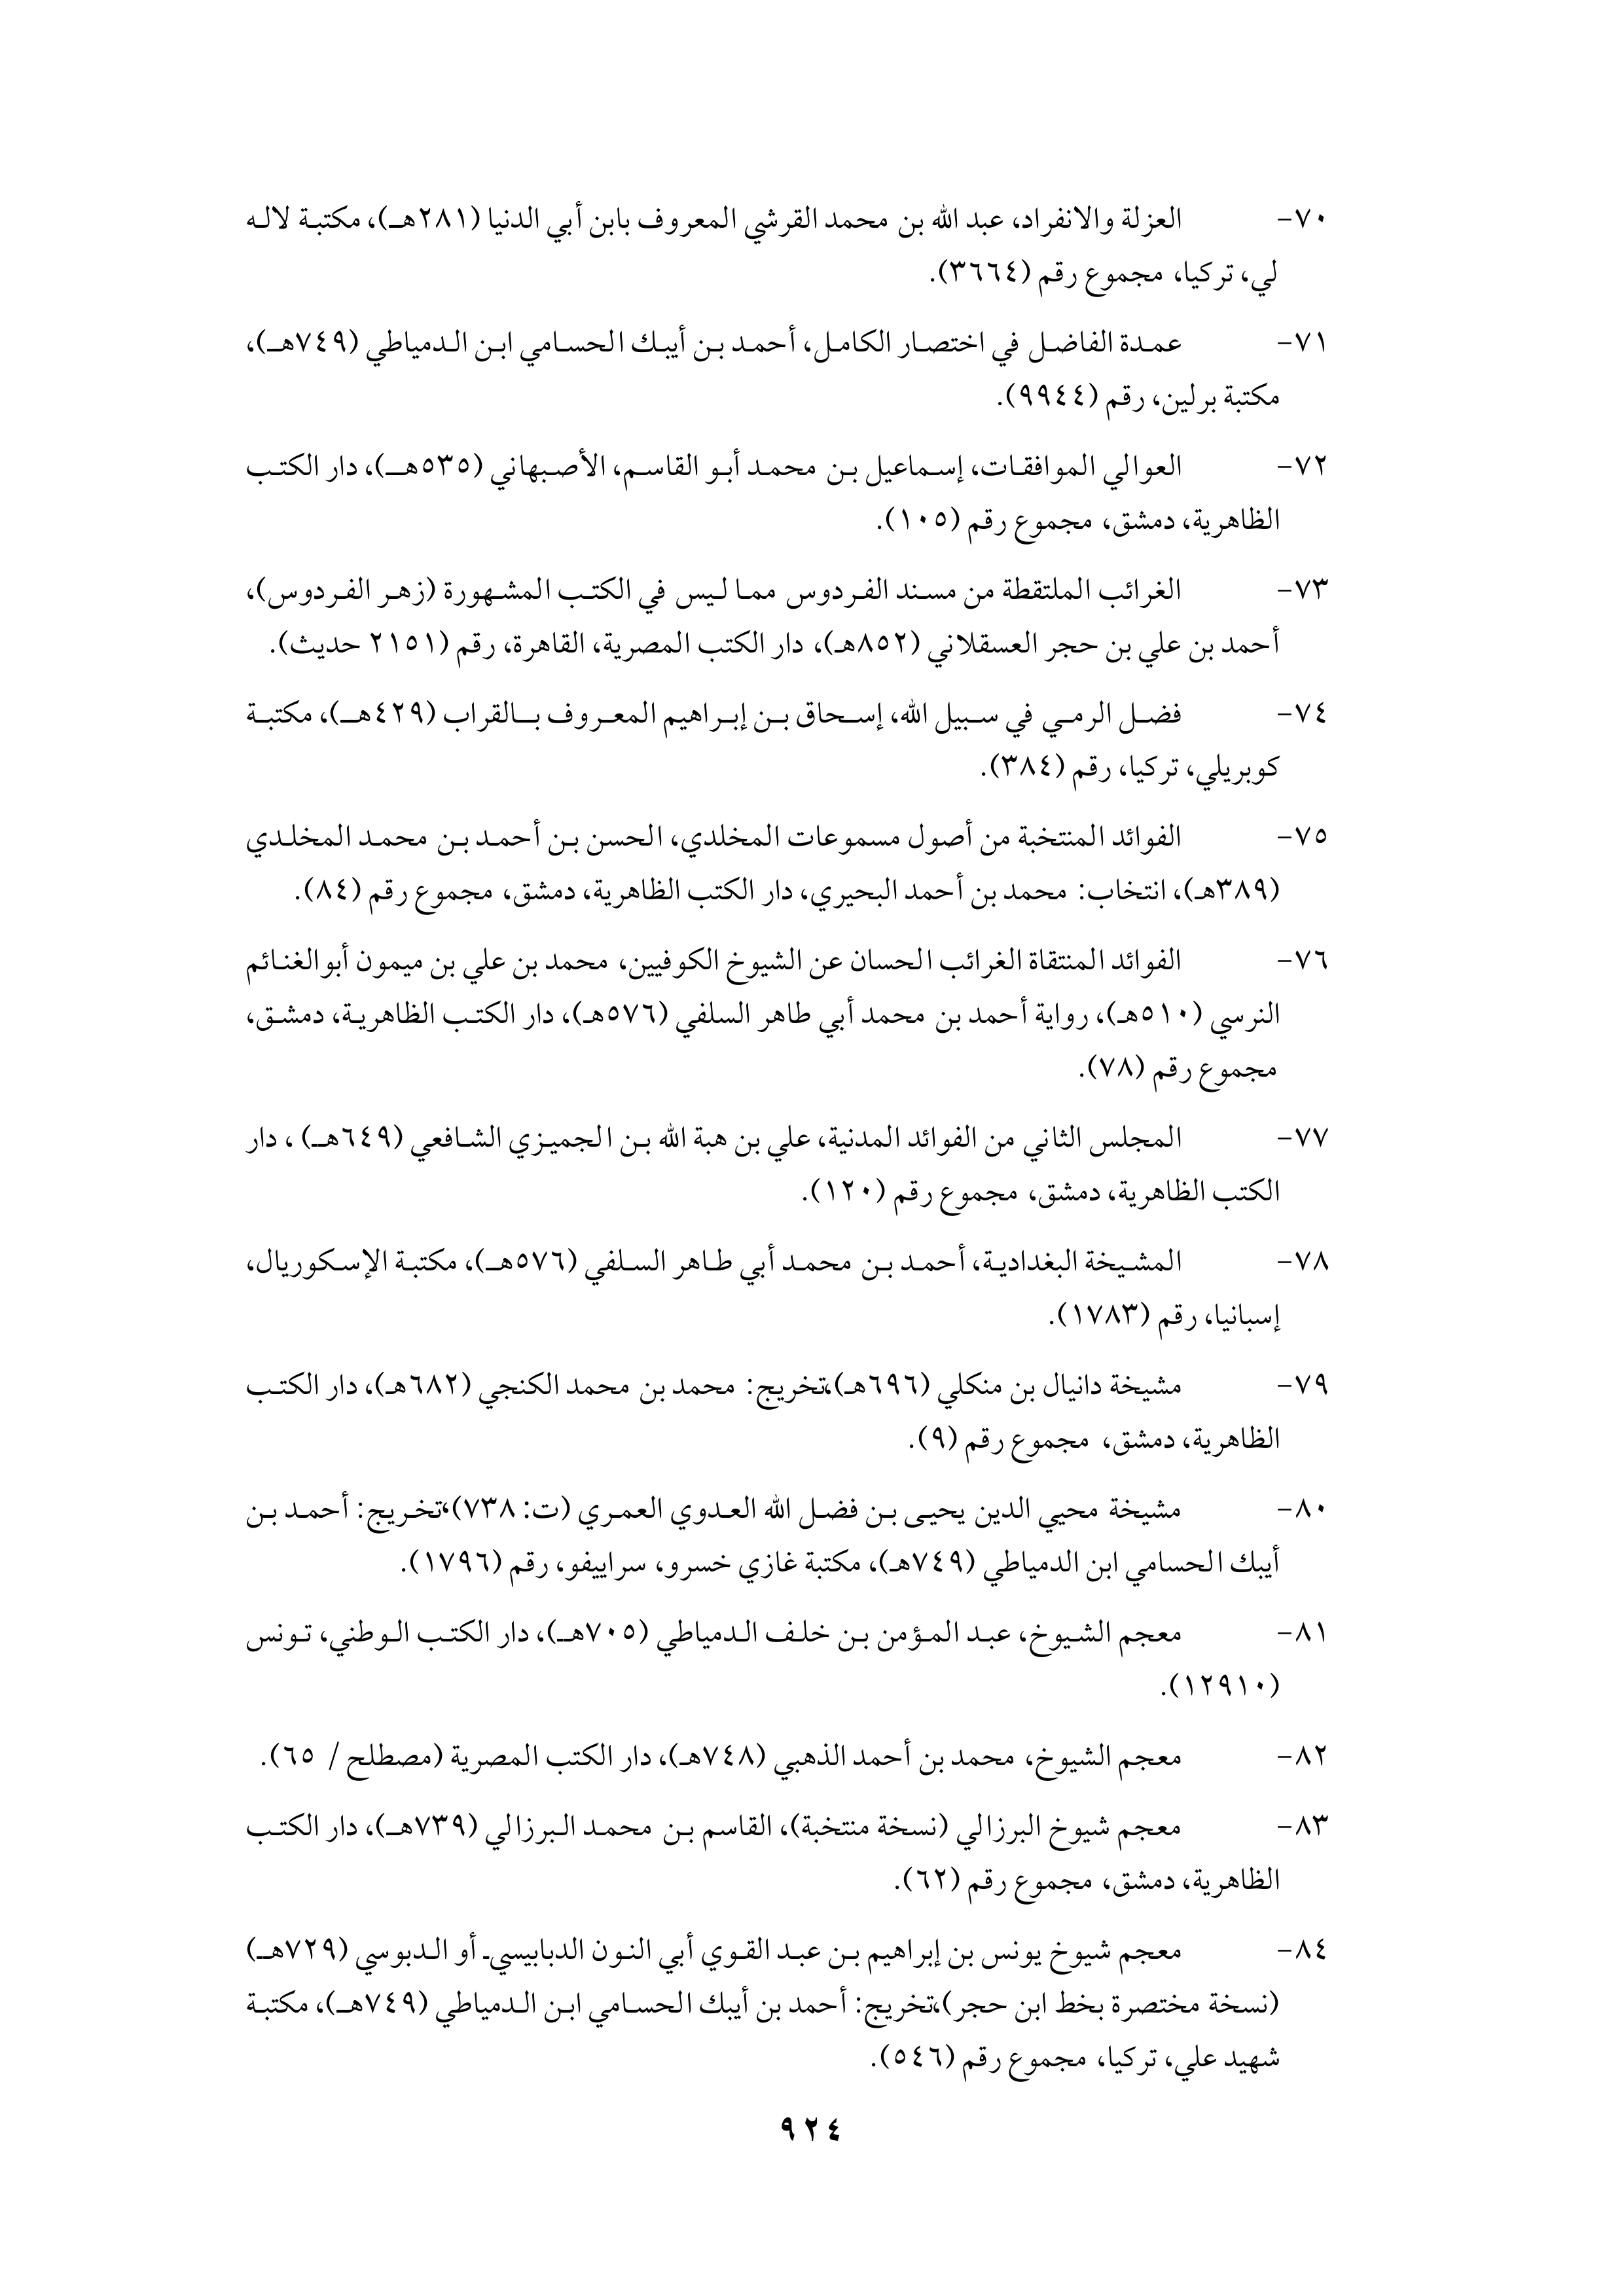 ٧٠- العزلة والانفراد، عبد الله بن محمد القرشي المعروف بابن أبي الدنيا (٢٨١هـ)، مكتبة لاله
لي، تركيا، مجموع رقم (٣٦٦٤).
٧١- عمدة الفاضل في اختصار الكامل، أحمد بن أيبك الحسامي ابن الدمياطي (٧٤٩هـ)،
مكتبة برلين، رقم (٩٩٤٤).
٧٢- العوالي الموافقات، إسماعيل بن محمد أبو القاسم، الأصبهاني (٥٣٥هـ)، دار الكتب
الظاهرية، دمشق، مجموع رقم (١٠٥).
٧٣- الغرائب الملتقطة من مسند الفردوس مما ليس في الكتب المشهورة (زهر الفردوس)،
أحمد بن علي بن حجر العسقلاني (٨٥٢هـ)، دار الكتب المصرية، القاهرة، رقم (٢١٥١ حديث).
٧٤- فضل الرمي في سبيل الله، إسحاق بن إبراهيم المعروف بالقراب (٤٢٩هـ)، مكتبة
كوبريلي، تركيا، رقم (٣٨٤).
٧٥- الفوائد المنتخبة من أصول مسموعات المخلدي، الحسن بن أحمد بن محمد المخلدي
(٣٨٩هـ)، انتخاب: محمد بن أحمد البحيري، دار الكتب الظاهرية، دمشق، مجموع رقم (٨٤).
٧٦- الفوائد المنتقاة الغرائب الحسان عن الشيوخ الكوفيين، محمد بن علي بن ميمون أبوالغنائم
النرسي (٥١٠هـ)، رواية أحمد بن محمد أبي طاهر السلفي (٥٧٦هـ)، دار الكتب الظاهرية، دمشق،
مجموع رقم (٧٨).
٧٧- المجلس الثاني من الفوائد المدنية، علي بن هبة الله بن الجميزي الشافعي (٦٤٩هـ) ، دار
الكتب الظاهرية، دمشق، مجموع رقم (١٢٠).
٧٨- المشيخة البغدادية، أحمد بن محمد أبي طاهر السلفي (٥٧٦هـ)، مكتبة الإسكوريال،
إسبانيا، رقم (١٧٨٣).
٧٩- مشيخة دانيال بن منكلي (٦٩٦هـ)،تخريج: محمد بن محمد الكنجي (٦٨٢هـ)، دار الكتب
الظاهرية، دمشق، مجموع رقم (٩).
٨٠- مشيخة محيي الدين يحيى بن فضل الله العدوي العمري (ت: ٧٣٨)،تخريج: أحمد بن
أيبك الحسامي ابن الدمياطي (٧٤٩هـ)، مكتبة غازي خسرو، سراييفو، رقم (١٧٩٦).
٨١- معجم الشيوخ، عبد المؤمن بن خلف الدمياطي (٧٠٥هـ)، دار الكتب الوطني، تونس
(١٢٩١٠).
٨٢- معجم الشيوخ، محمد بن أحمد الذهبي (٧٤٨هـ)، دار الكتب المصرية (مصطلح / ٦٥).
٨٣- معجم شيوخ البرزالي (نسخة منتخبة)، القاسم بن محمد البرزالي (٧٣٩هـ)، دار الكتب
الظاهرية، دمشق، مجموع رقم (٦٢).
٨٤- معجم شيوخ يونس بن إبراهيم بن عبد القوي أبي النون الدبابيسي أو الدبوسي (٧٢٩هـ)
(نسخة مختصرة بخط ابن حجر)،تخريج: أحمد بن أيبك الحسامي ابن الدمياطي (٧٤٩هـ)، مكتبة
شهيد علي، تركيا، مجموع رقم (٥٤٦).
٩٢٤